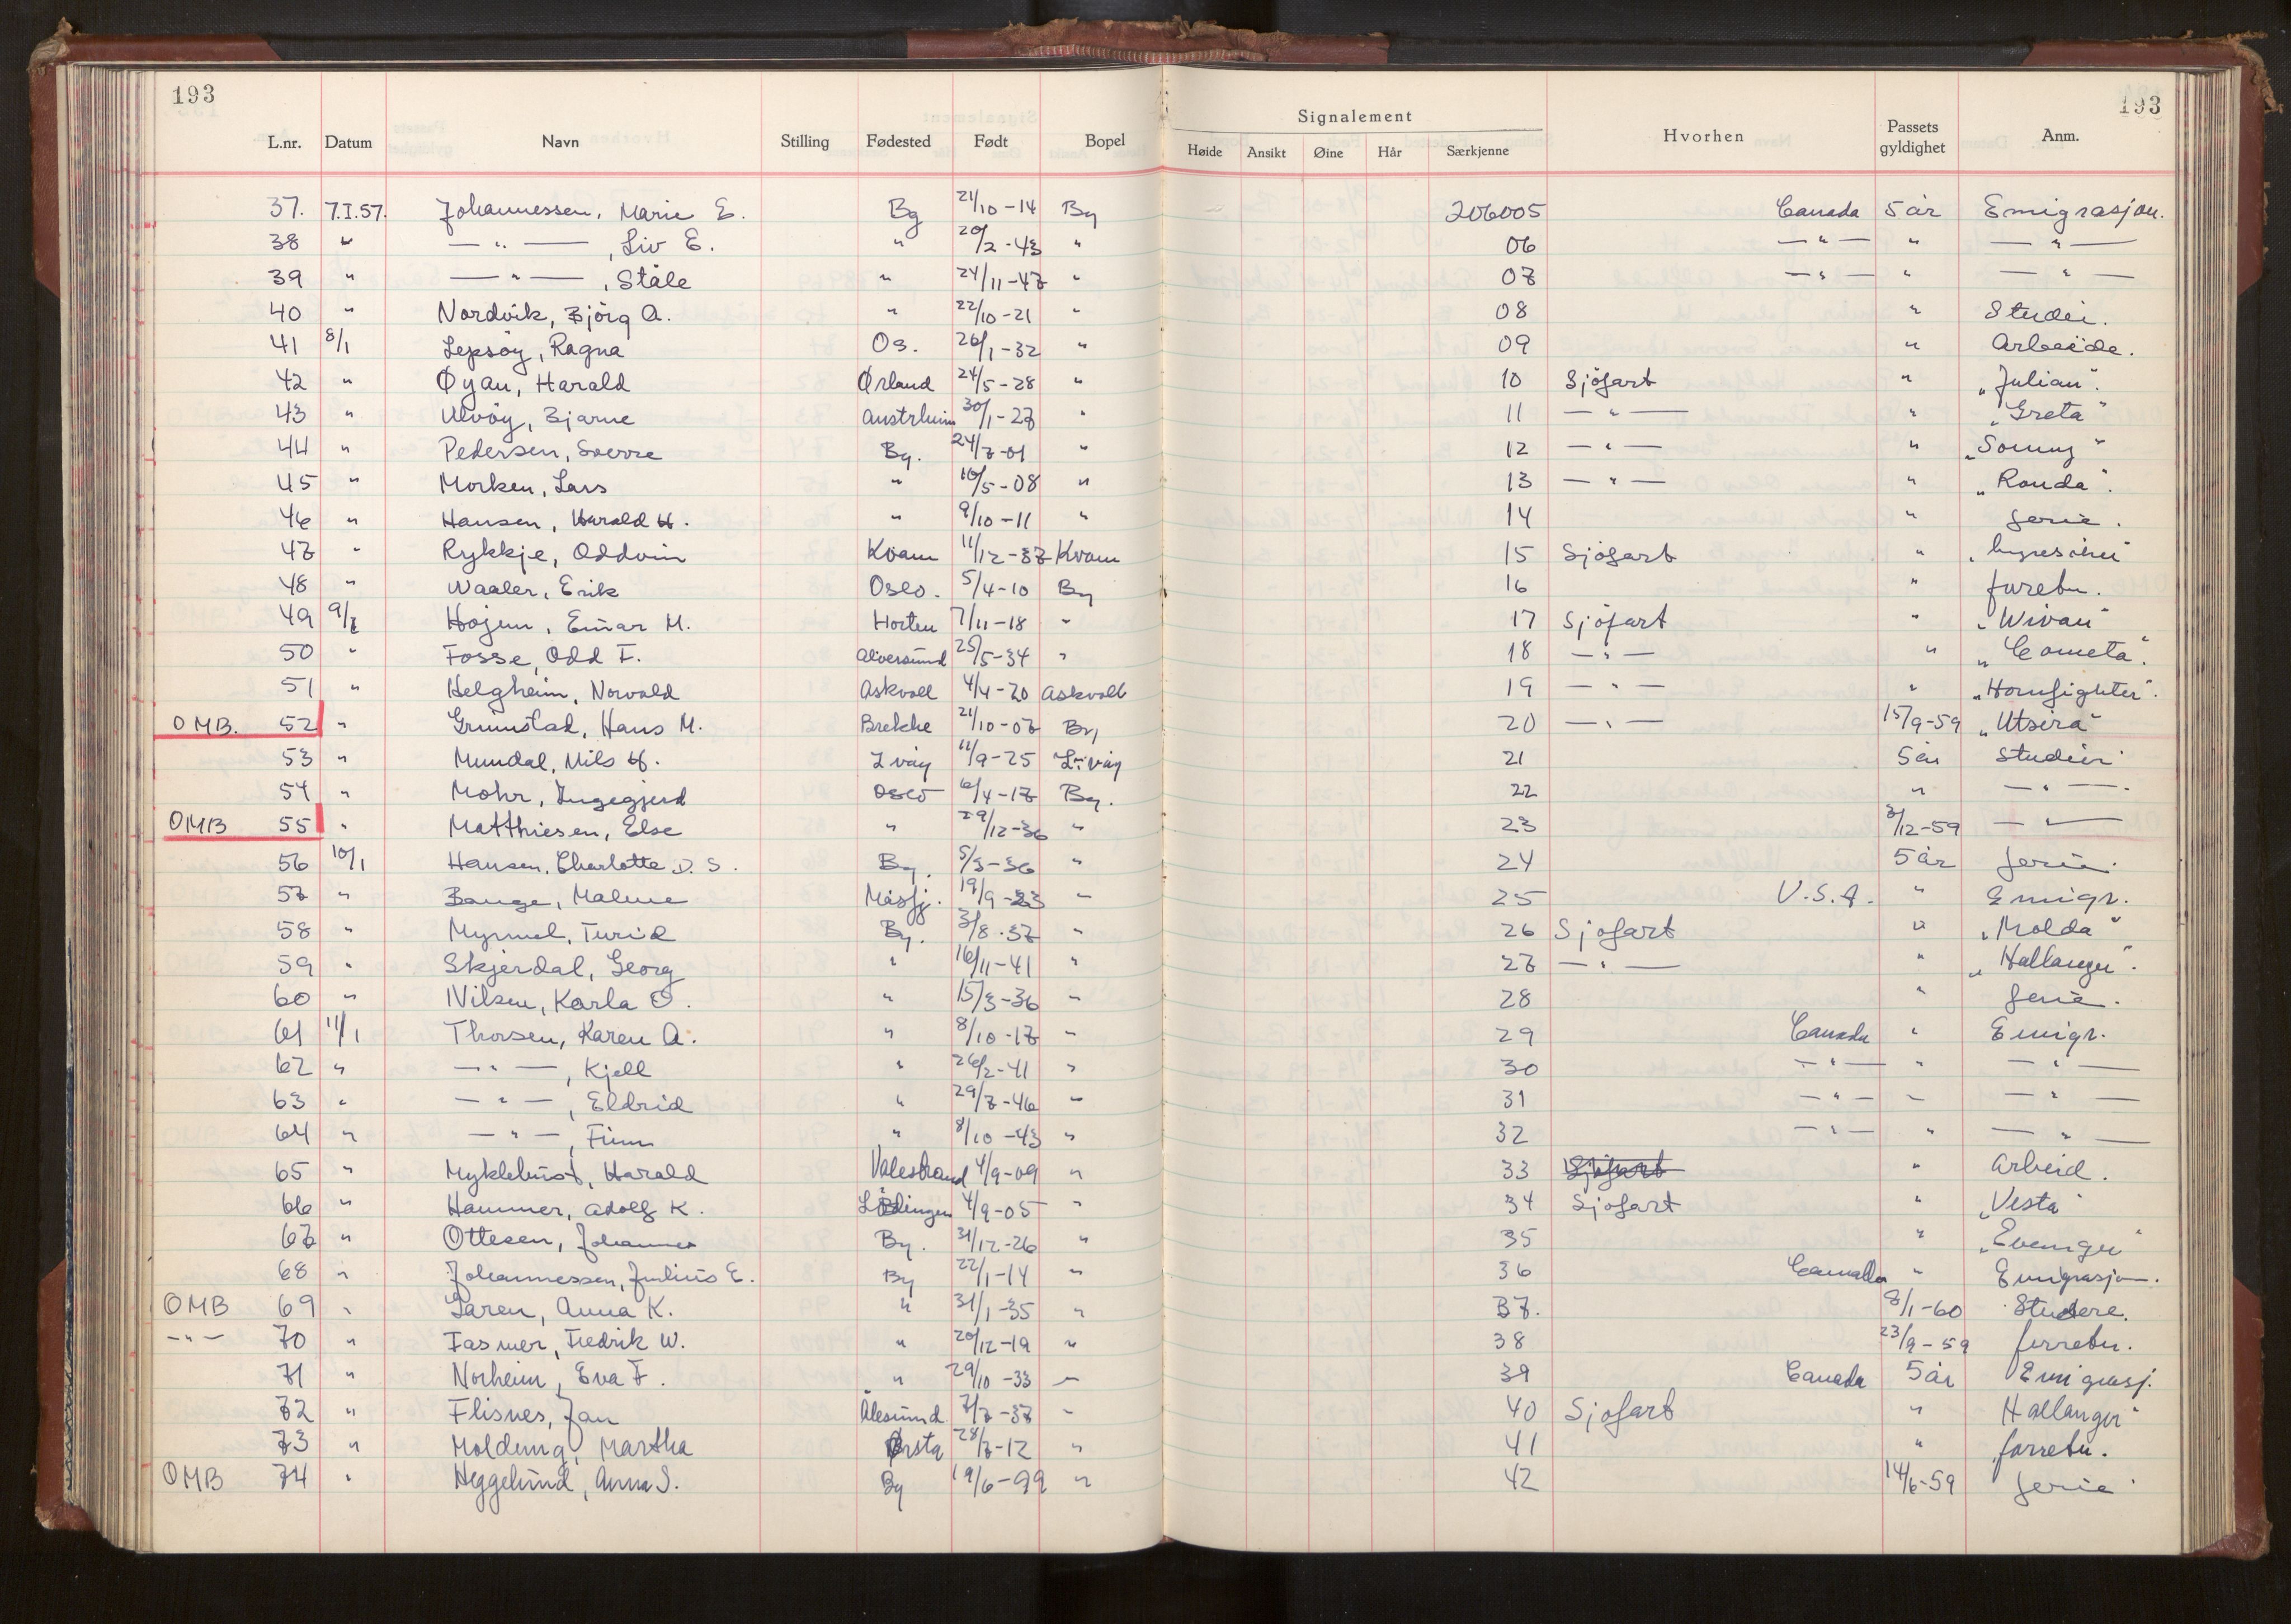 193
193
Signalement
L.nr. Datum Navn Stilling Fødested Født Bopel Høide Ansikt Øine Hår Særkjenne Hvorhen Passets gyldighet Anm.
37. 7.I.57. Johannessen, Marie E. Bg 21/10-14 Bg 206005 Canada 5 år Emigrasjon.
38 " — " — , Liv E. " 20/2-43 " 06 — " — " — " —
39 " — " — , Ståle " 24/11-47 " 07 — " — " — " —
40 " Nordvik, Björg A. " 22/10-21 " 08 " Studie.
41 8/1 Lepsöy, Ragna Os. 26/1-32 " 09 " Arbeide.
42 " Øyan, Harald Ørland 24/5-28 " 10 Sjöfart " "Julian".
43 " Ulvöy, Bjarne Austrheim 30/1-27 " 11 — " — " "Greta"
44 " Pedersen, Sverre Bg. 24/7-01 " 12 — " — " "Sonny"
45 " Morken, Lars " 10/5-08 " 13 — " — " "Ronda".
46 " Hansen, Harald H. " 9/10-11 " 14 " ferie.
47 " Rykkje, Oddvin Kvam 11/12-37 Kvam 15 Sjöfart "
48 " Waaler, Erik Oslo. 5/4-10 Bg 16 " forretn.
49 9/1 Höjem, Einar M. Horten 7/11-18 " 17 Sjöfart " "Wivan"
50 " Fosse, Odd F. Alversund 25/5-34 " 18 — " — " "Cometa".
51 " Helgheim, Norvald Askvoll 4/4-20 Askvoll 19 — " — " "Hornfighter".
OMB. 52 " Grimstad, Hans M. Brekke 21/10-07 Bg 20 — " — 15/9-59 "Utsira"
53 " Mundal, Nils H. 11/9-25 21 5 år Studier
54 " Mohr, Ingegjerd Oslo 6/4-17 Bg. 22 " — " —.
OMB 55 " Matthiesen, Else " 29/12-36 " 23 3/12-59 — " —
56 10/1 Hansen, Charlotte D. S. Bg. 5/3-36 " 24 5 år ferie.
57 " Bauge, Malene Måsfj. 19/9-23 " 25 U.S.A. " Emigr.
58 " Myrmel, Turid Bg. 3/8-37 " 26 Sjöfart " "Molda"
59 " Skjerdal, Georg " 16/11-41 " 27 — " — " "Hallanger".
60 " Nilsen, Karla O. " 15/3-36 " 28 " ferie.
61 11/1 Thorsen, Karen A. " 8/10-17 " 29 Canada " Emigr.
62 " — " — , Kjell " 26/2-41 " 30 — " — " — " —
63 " — " — , Eldrid " 29/7-46 " 31 — " — " — " —
64 " — " — , Finn " 8/10-43 " 32 — " — " — " —
65 " Myklebust, Harald Valestrand 4/9-09 " 33 Sjöfart " Arbeid.
66 " Hammer, Adolf K. Lödingen 4/9-05 " 34 Sjöfart " "Vesta"
67 " Ottesen, Johannes Bg. 31/12-26 " 35 " "Evenger"
68 " Johannessen, Julius E. Bg 22/1-14 " 36 Canada " Emigrasjon.
OMB 69 " Garen, Anna K. " 31/1-35 " 37. 8/1-60 Studere.
— " — 70 " Fasmer, Fredrik W. " 20/12-19 " 38 23/9-59 forretn.
71 " Norheim, Eva F. " 29/10-33 " 39 Canada 5 år Emigrasj.
72 " Flisnes, Jan Ålesund 7/7-37 " 40 Sjöfart " Hallanger"
73 " Moldung, Martha Ørsta 28/7-12 " 41 " forretn.
OMB 74 " Heggelund, Anna S. Bg 19/6-99 " 42 14/6-59 ferie